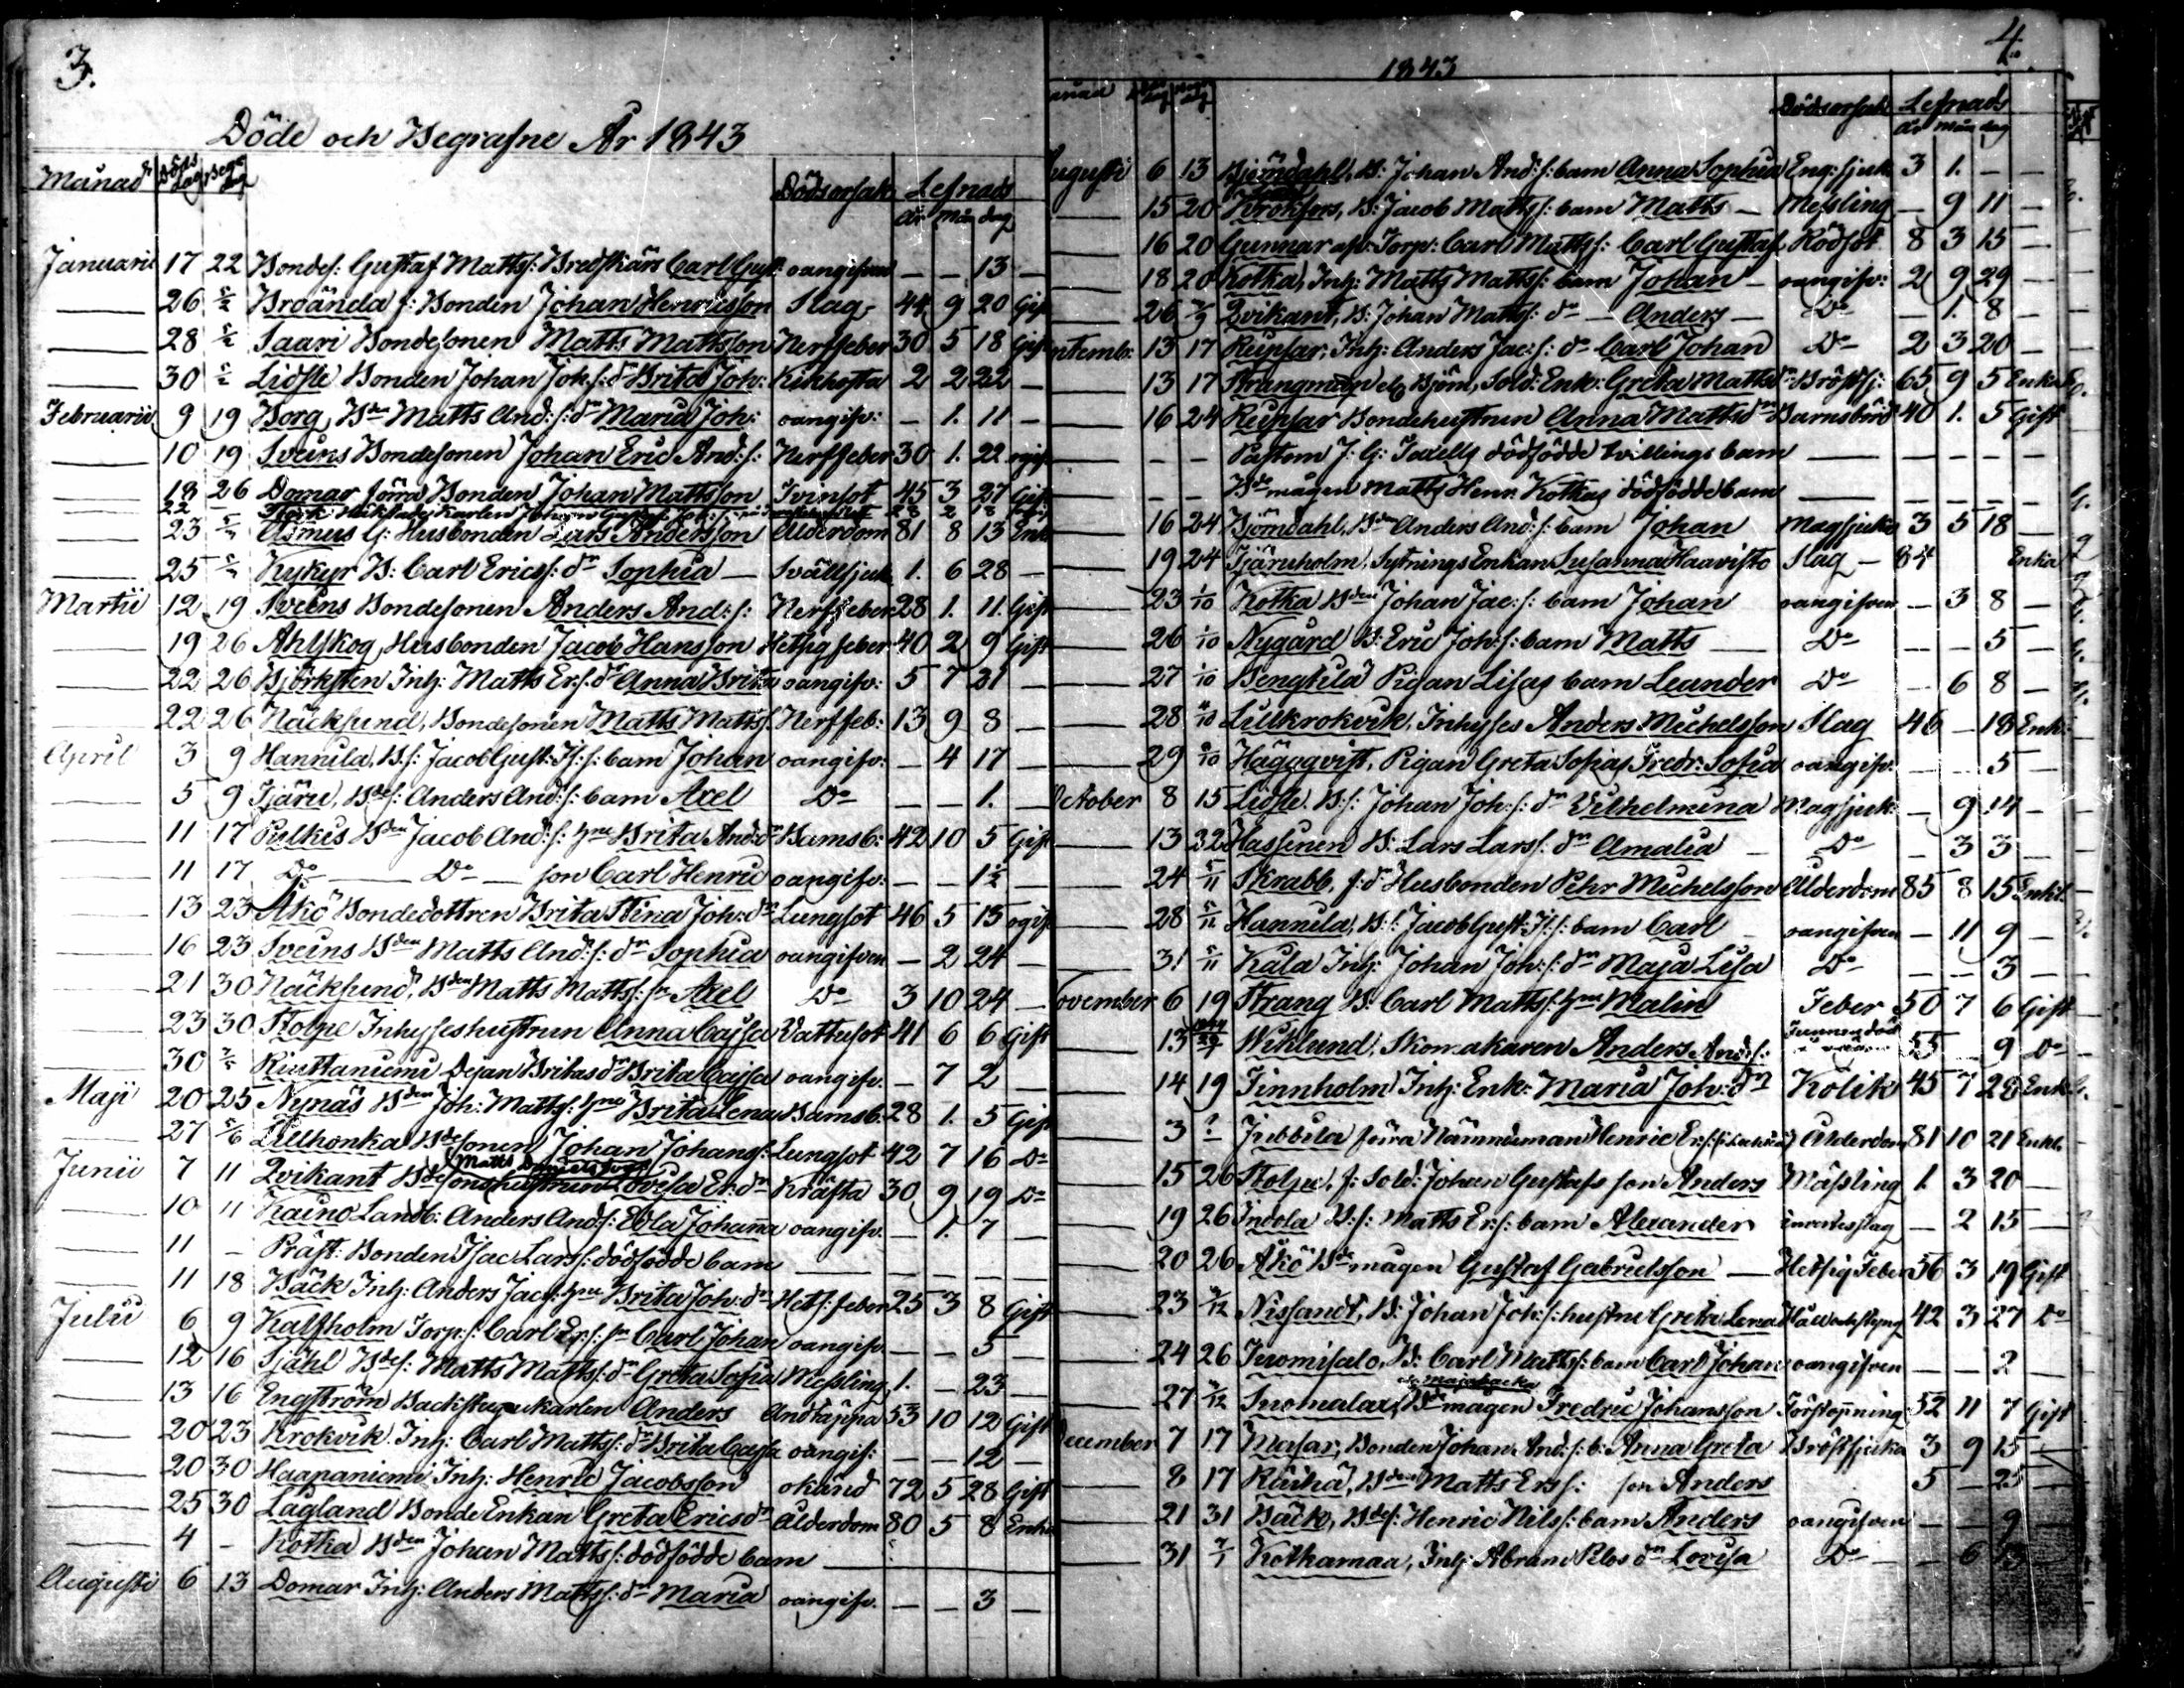 3.
Döde och Begrafne År 1843
Månad Döds dag Begr. dag Dödsorsak Lefnads år mån dag
Januarii 17 22 Bondes: Gustaf Matts: Bredskärs Carl Gust: oangifven — — 13 —
— 26 5/2 Broända f: Bonden Johan Henricsson Slag 44 9 20 Gift
— 28 5/2 Saari Bondesonen Matts Mattsson Nerffeber 30 5 18 Gift
— 30 5/2 Lidsle Bonden Johan Joh:s: dr Brita Joh: Kikhosta 2 2 22 —
Februarii 9 19 Borg, Bdn Matts And:s: dr Maria Joh: oangifv: — 1. 11 —
— 10 19 Sveins Bondesonen Johan Eric And:s: Nerffeber 30 1. 22 ogift
— 18 26 Domar förra Bonden Johan Mattsson Tvinsot 45 3 27 Gift
22 — Johan Gustaf 28 2 18
— 23 5/3 Asmus G: Husbonden Lars Andersson Ålderdom 81 8 13 Enk
— 25 5/3 Kykyr B: Carl Erics: dr Sophia — Svällsjuk 1. 6 28 —
Martii 12 19 Sveins Bondesonen Anders And:s: Nerffeber 28 1. 11 Gift
— 19 26 Ahlskog, Husbonden Jacob Hansson Hetsig feber 40 2 9 Gift
— 22 26 Björksten Inh: Matts Er:s: dr Anna Brita oangifv: 5 7 21 —
— 22 26 Näcksund, Bondesonen Matts Matts: Nerffeb: 13 9 8 —
April 3 9 Hannula, B:s: Jacob Gust: Is:s: barn Johan oangifv: — 4 17 —
— 5 9 Tjäru, Bdes: Anders And:s: barn Axel Do — — 1. —
— 11 17 Pulkis Bden Jacob And:s: hru Brita And:dr Barnsb: 42 10 5 Gift
— 11 17 Do — Do — son Carl Henric oangifv: — — 1½ —
— 13 23 Åkö Bondedottren Brita Stina Joh:dr Lungsot 46 5 15 ogift
— 16 23 Sveins Bden Matts And:s: dr Sophia oangifven — 2 24 —
— 21 30 Näcksund, Bden Matts Matts: sn Axel Do 3 10 24 —
— 23 30 Stolpe Inhysseshustrun Anna Cajsa Vattusot 41 6 6 Gift
— 30 7/5 Riuttaniemi Dejan Britas dr Brita Cajsa oangifv. — 7 2 —
Maji 20 25 Nynäs Bden Joh: Matts: hru Brita Lena Barnsb. 28 1. 5 Gift
— 27 5/6 Lillhonka Bdesonen Johan Johans: Lungsot 42 7 16 Do
Matts Danielssons
Junii 7 11 Qvikant Bdesonshustrun Lovisa Er:dr Kräfta 30 9 19 Do
— 10 11 Kaino Landb: Anders And:s: Ebla Johanna oangifv. — 1. 7 —
— 11 — Präst: Bonden Isac Lars: dödfödde barn — — — —
— 11 18 Bäck Inh: Anders Jac:s: hru Brita Joh:dr Hets: feber 25 3 8 Gift
Julii 6 9 Kalfholm Torp:s: Carl Er:s: sn Carl Johan oangifv. — — 5 —
— 12 16 Sjähl Bdes: Matts Matts: dr Greta Sofia Messling 1. — 23 —
— 13 16 Engström Backstugukarlen Anders Andtäppa 53 10 12 Gift
— 20 23 Krokvik Inh: Carl Matts: dr Brita Cajsa oangif: — — 12 —
— 20 30 Haapaniemi Inh: Henric Jacobsson okänd 72 5 28 Gift
— 25 30 Lagland Bonde Enkan Greta Ericsdr Ålderdom 80 5 8 Enka
— 4 — Kotka Bden Johan Matts: dödfödde barn —
Augusti 6 13 Domar Inh: Anders Matts: dr Maria oangifv. — — 3 —
4.
1843
Dödsorsak Lefnads år mån dag
Augusti 6 13 Björndahl, B: Johan And:s: barn Anna Sophia Eng: sjuk 3 1. — —
— 15 20 Krokfors, B: Jacob Matts: barn Matts — Messling — 9 11 —
— 16 20 Gunnar afsk: Torp: Carl Matts: Carl Gustaf Rödsot 8 3 15 —
— 18 20 Kotka, Inh: Matts Matts: barn Johan — oangifv: 2 9 29 —
— 26 3/9 Qvikant, B: Johan Matts: dr — Anders — Do — 1. 8 —
Septemb: 13 17 Rupsar, Inh: Anders Jac:s: dr Carl Johan Do 2 3 20 —
— 13 17 Strangman el. Björn, Sold: Enk: Greta Mattsdr Bröstsj: 65 9 5 Enka
— 16 24 Rupsar Bondehustrun Anna Mattsdr Barnsbörd 40 1. 5 Gift
— — Pastorn J: G: Tadells dödfödde tvillings barn — — — —
— — Bdemågen Matts Henr. Kotkas dödfödde barn — — — —
— 16 24 Björndahl, Bden Anders And:s: barn Johan Magsjuka 3 5 18 —
— 19 24 Tjäruholm, Sytnings Enkan Susanna Haavisto Slag — 84 Enka
— 23 1/10 Kotka Bden Johan Jac:s: barn Johan oangifven — 3 8 —
— 26 1/10 Nygård B: Eric Joh:s: barn Matts — Do — — 5 —
— 27 1/10 Bengtilä Pigan Lisas barn Leander Do — 6 8 —
— 28 8/10 Lillkrokvik, Inhyses Anders Michelsson Slag 46 — 18 Enk:
— 29 8/10 Häggqvist, Pigan Greta Sofias Fredr: Sofia oangifv: — — 5 —
October 8 15 Lidsle. B:s: Johan Joh:s: dr Vilhelmina Magsjuk: — 9 14 —
— 13 22 Hassinen B: Lars Lars: dr Amalia — Do — 3 3 —
— 24 5/11 Skrabb, f:d: Husbonden Pehr Michelsson Ålderdom 85 8 15 Enkl:
— 28 5/11 Hannula, B:s: Jacob Gust: Is:s: barn Carl — oangifven — 11 9 —
— 31 5/11 Kula Inh: Johan Joh:s: dr Maja Lisa Do — — 3 —
November 6 19 Strang B: Carl Matts: hru Malin Feber 50 7 6 Gift
— 13 Wiklund, Skomakaren Anders And:s: Funnen död 55 — 9 Do
— 14 19 Finnholm Inh: Enk: Maria Joh:dr Kolik 45 7 28 Enk.
— 3 ? Jubbila förra Nämndeman Henric Er:s: Ålderdom 81 10 21 Enkl.
— 15 26 Stolpe, f: Sold: Johan Gustafs son Anders Mässling 1. 3 20 —
— 19 26 Indola B:s: Matts Er:s: barn Alexander invertesslag — 2 15 —
— 20 26 Åkö Bdemågen Gustaf Gabrielsson — Hetsig Feber 56 3 19 Gift
— 23 3/12 Nissandt, B: Johan Joh:s: hustru Greta Lena Håll och styng 42 3 27 Do
— 24 26 Tuomisalo, B: Carl Matts: barn Carl Johan oangifven — — 2 —
— 27 3/12 Suomalax, Bdemågen Fredric Johansson Förstopning 52 11 7 Gift
December 7 17 Masar, Bonden Johan And:s: b: Anna Greta Bröstsjuka 3 9 15 —
— 8 17 Räihä, Bden Matts Ers: son Anders 5 — 25 —
— 21 31 Bäck, Bdes: Henric Nils: barn Anders oangifven — — 9
— 31 7/1 Kotkamaa, Inh: Abram Pelos dr Lovisa Do — 6